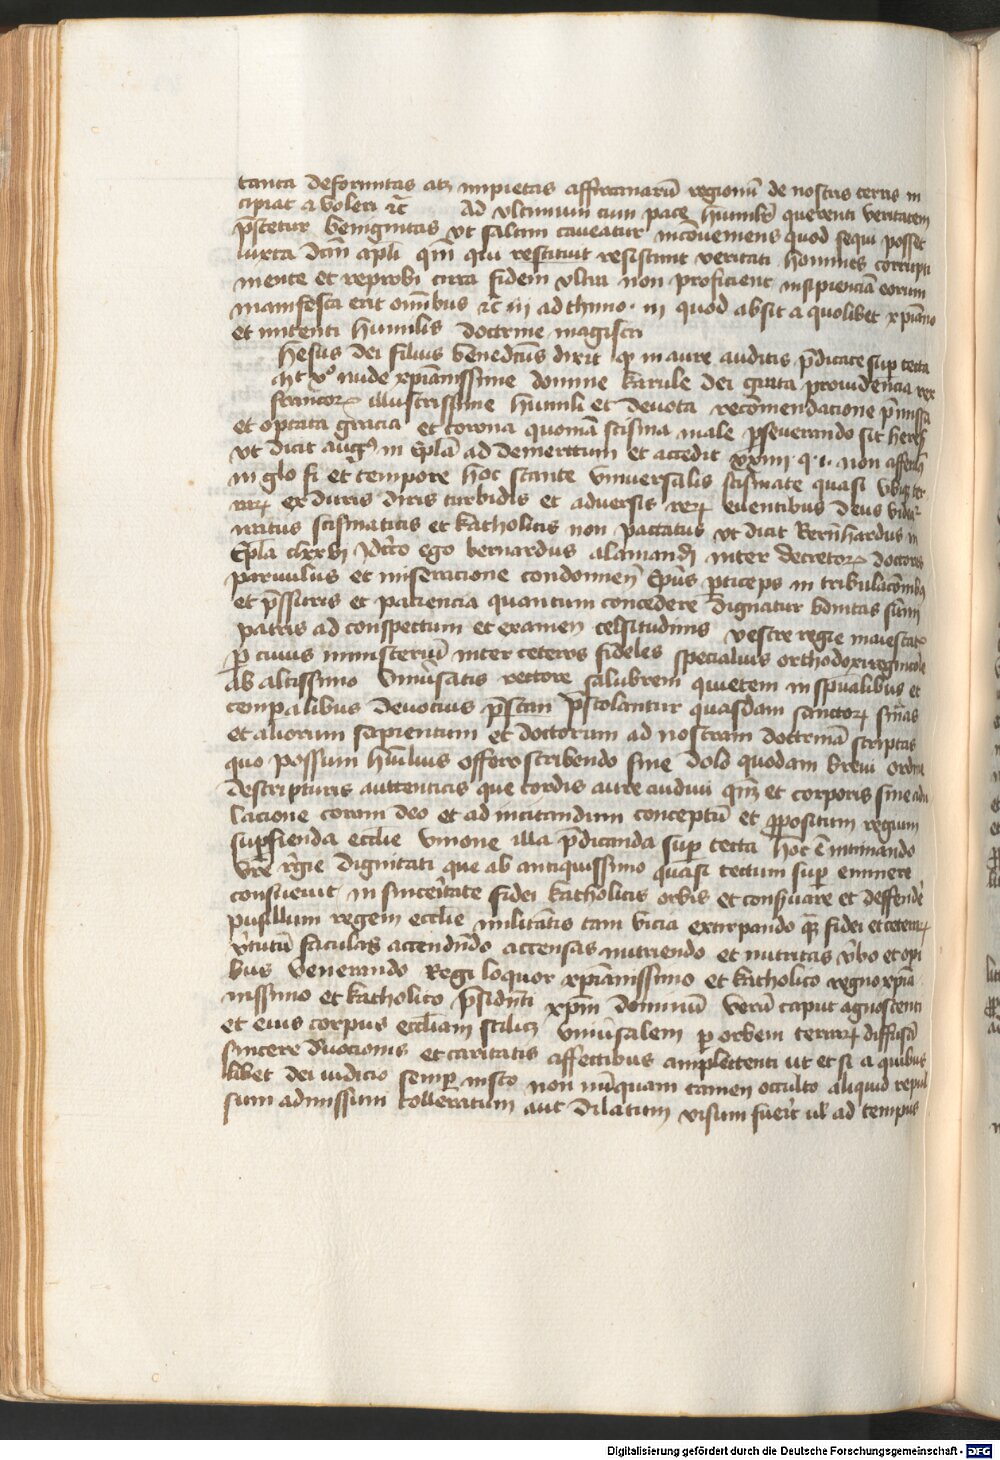 tanta deformitas atqꝫ impietas affricanarū regionū de nostris terris in
cipiat aboleri ⁊c̄ Ad vltimum cum pace humilit̄ querenti veritatem
p̄stetur benignitas vt saltim caueatur incōueniens quod sequi posset
iuxta dcm̄ apl̄i qm̄ qui restituit resistunt veritati homines corrupti
mente et reprobi circa fidem vltra non proficient insipienciā eorum
manifesta erit om̄ibus ⁊c̄ ii ad thimo · iii quod absit a quolibet xp̄iano
et nitenti humilis doctrine magistri
Hesus dei filius benedcūs dixit qꝫ in aure auditis p̄dicate sup tecta
nūc xp̄ianissime domine karule dei grata prouidencia rex
francorꝝ illustrissime humili et deuota recōmendacione p̄missa
et optata gracia et corona quoniā scisma male p̄seuerando fit heres̄
vt dicit augꝰ in Ep̄la ad demeritum et accedit xxiiii · q · i · non afferēs
in glo fi et tempore hoc stante vniuersalis scismate quasi vbiqꝫ ter
rarꝝ ex duris diris turbidis et aduersis rerꝝ euentibus deus videtᷣ
iratus scismaticis et katholicis non pactatus vt dicit Bern̄hardus in
Ep̄la Idcirco ego bernardus alamandi inter decretorꝝ doctores
paruulus et miseracione condomien̄ Ep̄us p̄ticeps in tribulacōnibus
et p̄ssuris et paciencia quantum concedere dignatur bonitas sūmi
patris ad conspectum et examen celsitudinis vestre regie maiestatꝭ
p̄ cuius ministeriū inter ceteros fideles specialius orthodoxi regnicole
ab altissimo vniūsatis rectore salubrem quietem in sp̄ualibus et
temp̄alibus deuocius p̄stari p̄stolantur quasdam sanctorꝝ sn̄ias
et aliorum sapientum et doctorum ad nostram doctrinā scriptas
quo possum humilius offero scribendo sine dolo quodam breui ordine
de scripturis auttenticis que cordis aure audiui qꝫ et corporis sine adu
lacione coram deo et ad incitandum conceptū et ꝓpositum regium
sup fienda eccl̄ie vnione illa p̄dicanda sup tecta hoc ē intimando
vr̄e r̄gie dignitati que ab antiquissimo quasi tectum sup eminere
consueuit in sinceritate fidei katholicis orbis et cons̄uare et deffendē
pusillum regem eccl̄ie militantis tam vicia extirpando qꝫ fidei et ceterarꝝ
v̄tutū faculas accendendo accensas nutriendo et nutritas v̄bo et opi
bus venerando Regi loquor xp̄ianissimo et katholico regno xp̄ia
nissimo et katholico p̄sidēti xp̄m dominū verū caput agnoscenti
et eius corpus eccl̄iam scilicꝫ vniūsalem p orbem terrarꝝ diffusā
sincere deuocionis et caritatis affectibus amplectenti ut et si a quibus
libet dei iudicio semp iusto non nūquam tamen occulto aliquid repul
sum admissum tolleratum aut dilatum visum fuerit ul̄ ad tempus
Digitalisierung gefördert durch die Deutsche Forschungsgemeinschaft - DFG